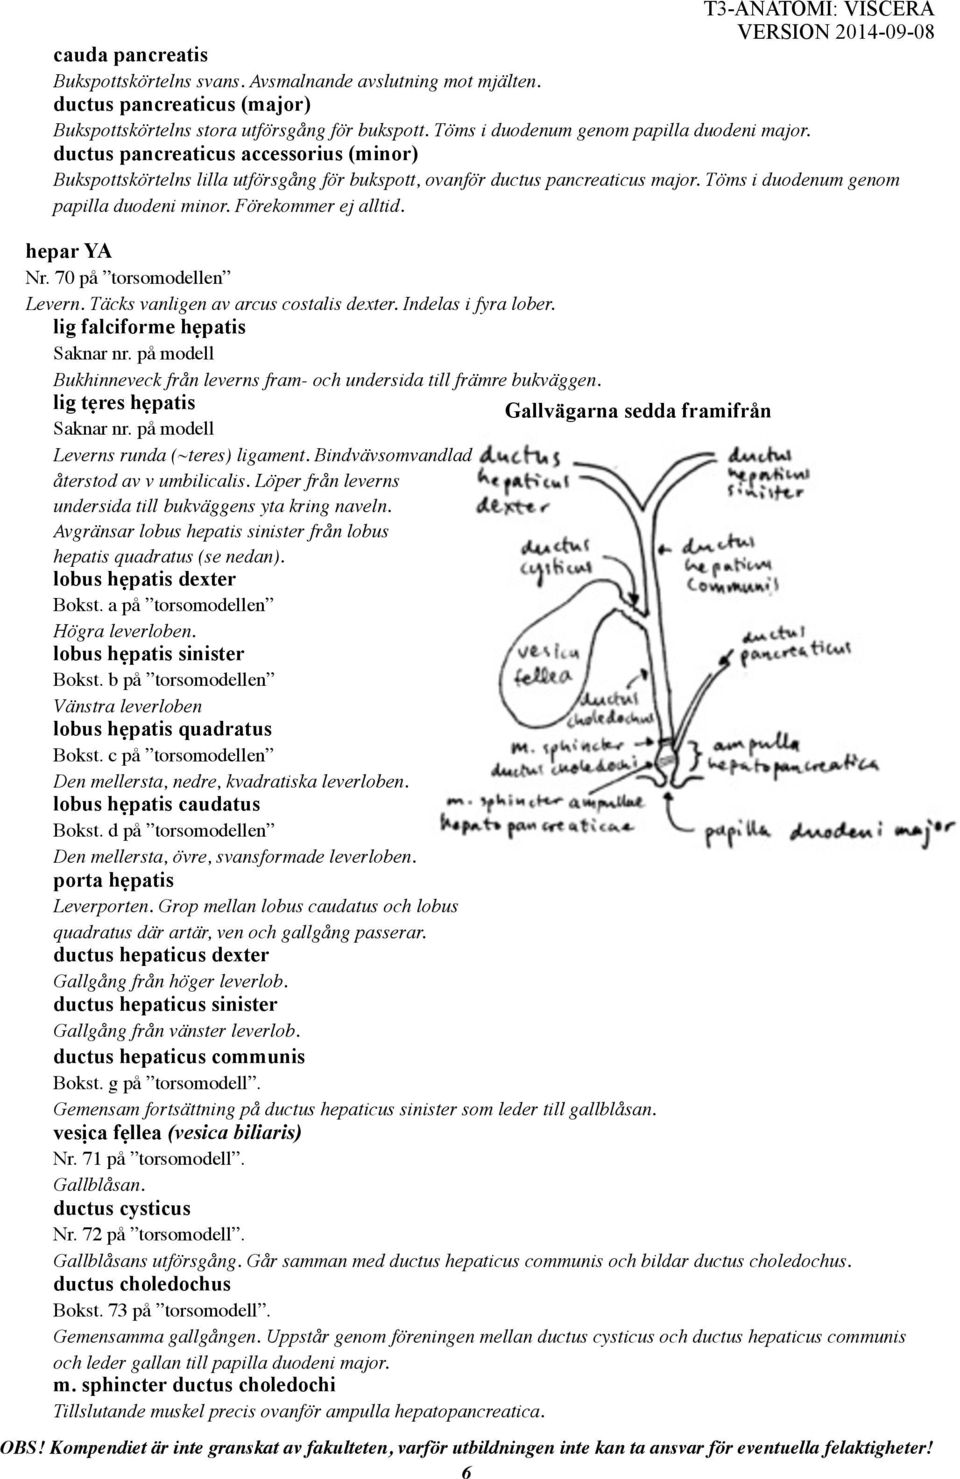 T3-ANATOMI: VISCERA
VERSION 2014-09-08
cauda pancreatis
Bukspottskörtelns svans. Avsmalnande avslutning mot mjälten.
ductus pancreaticus (major)
Bukspottskörtelns stora utförsgång för bukspott. Töms i duodenum genom papilla duodeni major.
ductus pancreaticus accessorius (minor)
Bukspottskörtelns lilla utförsgång för bukspott, ovanför ductus pancreaticus major. Töms i duodenum genom
papilla duodeni minor. Förekommer ej alltid.
hepar YA
Nr. 70 på ”torsomodellen”
Levern. Täcks vanligen av arcus costalis dexter. Indelas i fyra lober.
lig falciforme hẹpatis
Saknar nr. på modell
Bukhinneveck från leverns fram- och undersida till främre bukväggen.
lig tẹres hẹpatis
Saknar nr. på modell
Leverns runda (~teres) ligament. Bindvävsomvandlad
återstod av v umbilicalis. Löper från leverns
undersida till bukväggens yta kring naveln.
Avgränsar lobus hepatis sinister från lobus
hepatis quadratus (se nedan).
lobus hẹpatis dexter
Bokst. a på ”torsomodellen”
Högra leverloben.
lobus hẹpatis sinister
Bokst. b på ”torsomodellen”
Vänstra leverloben
lobus hẹpatis quadratus
Bokst. c på ”torsomodellen”
Den mellersta, nedre, kvadratiska leverloben.
lobus hẹpatis caudatus
Bokst. d på ”torsomodellen”
Den mellersta, övre, svansformade leverloben.
porta hẹpatis
Leverporten. Grop mellan lobus caudatus och lobus
quadratus där artär, ven och gallgång passerar.
Gallvägarna sedda framifrån
ductus
hepaticus
dexter
ductus
hepaticus
sinister
ductus
cysticus
ductus
hepaticus
communis
vesica
fellea
ductus
pancreaticus
ductus
choledochus
m. sphincter
ductus choledochi
ampulla
hepatopancreatica
m. sphincter ampullae
hepatopancreaticae
papilla duodeni major
ductus hepaticus dexter
Gallgång från höger leverlob.
ductus hepaticus sinister
Gallgång från vänster leverlob.
ductus hepaticus communis
Bokst. g på ”torsomodell”.
Gemensam fortsättning på ductus hepaticus sinister som leder till gallblåsan.
vesịca fẹllea (vesica biliaris)
Nr. 71 på ”torsomodell”.
Gallblåsan.
ductus cysticus
Nr. 72 på ”torsomodell”.
Gallblåsans utförsgång. Går samman med ductus hepaticus communis och bildar ductus choledochus.
ductus choledochus
Bokst. 73 på ”torsomodell”.
Gemensamma gallgången. Uppstår genom föreningen mellan ductus cysticus och ductus hepaticus communis
och leder gallan till papilla duodeni major.
m. sphincter ductus choledochi
Tillslutande muskel precis ovanför ampulla hepatopancreatica.
OBS! Kompendiet är inte granskat av fakulteten, varför utbildningen inte kan ta ansvar för eventuella felaktigheter!
6